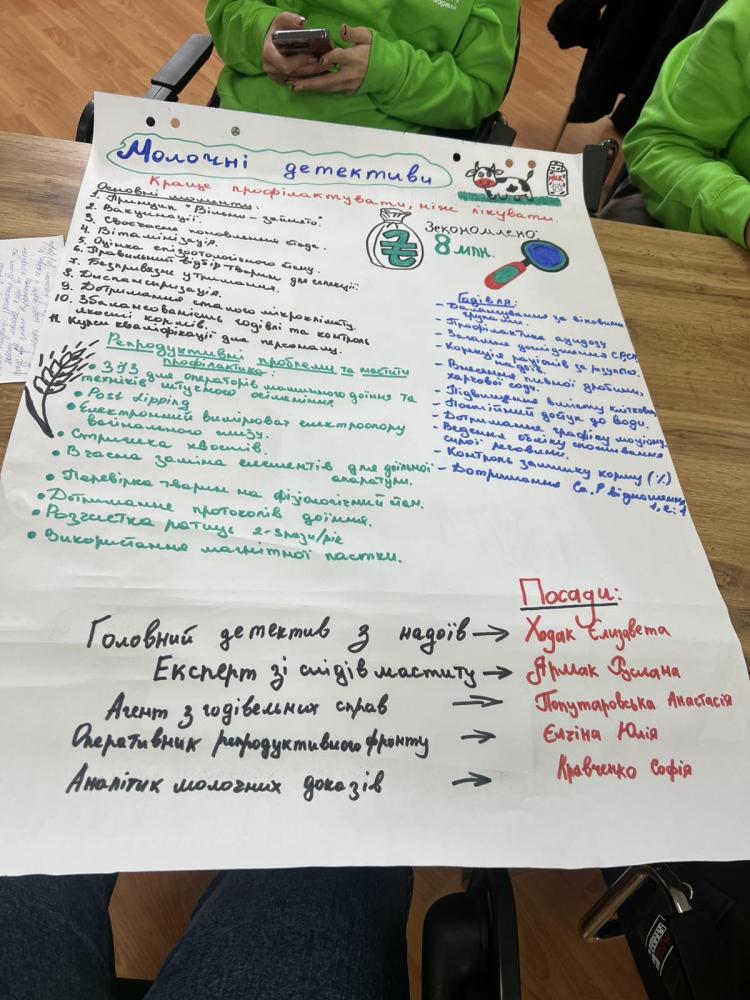 Молочні детективи
Краще профілактувати, ніж лікувати.
MILK
Зекономлено:
8 млн.
Основні моменти:
1. Принцип "Вільно - зайнято"
2. Вакцинації.
3. Своєчасне поповнення стада.
4. Вітамінізація.
5. Оцінка епізоотологічного стану.
6. Правильний відбір тварин для селекції.
7. Безприв'язне утримання.
8. Диспансеризація.
9. Дотримання сталого мікроклімату.
10. Збалансованість годівлі та контроль
якості кормів.
11. Курси кваліфікації для персоналу.
Репродуктивні проблеми та мастити
профілактика:
• ЗІЗ для операторів машинного доїння та
техніків штучного осіменіння
• Post dipping
• Електронний вимірювач електроопору
вагінального слизу.
• Стрижка хвостів.
• Вчасна заміна елементів для доїльної
апаратури.
• Перевірка тварин на фізіологічний стан.
• Дотримання протоколів доїння.
• Розчистка ратиць 2-3 рази/рік
• Використання магнітної пастки.
Годівля:
- Балансування за віковими
групами.
- Профілактика ацидозу
- Загальне дослідження
- Корекція раціонів за результ.
надоїв.
- Внесення пивної дробини,
харчової соди.
- Підвищення вмісту клітков
- Постійний доступ до води.
- Дотримання графіку моціону.
- Ведення обліку споживання
сирої речовини.
- Контроль залишку корму (%)
- Дотримання Ca, P відношення
Посади:
Головний детектив з надоїв → Ходак Єлизавета
Експерт зі слідів маститу → Ярмак Руслана
Агент з годівельних справ → Попутаровська Анастасія
Оперативник репродуктивного фронту → Єлгіна Юлія
Аналітик молочних доказів → Кравченко Софія